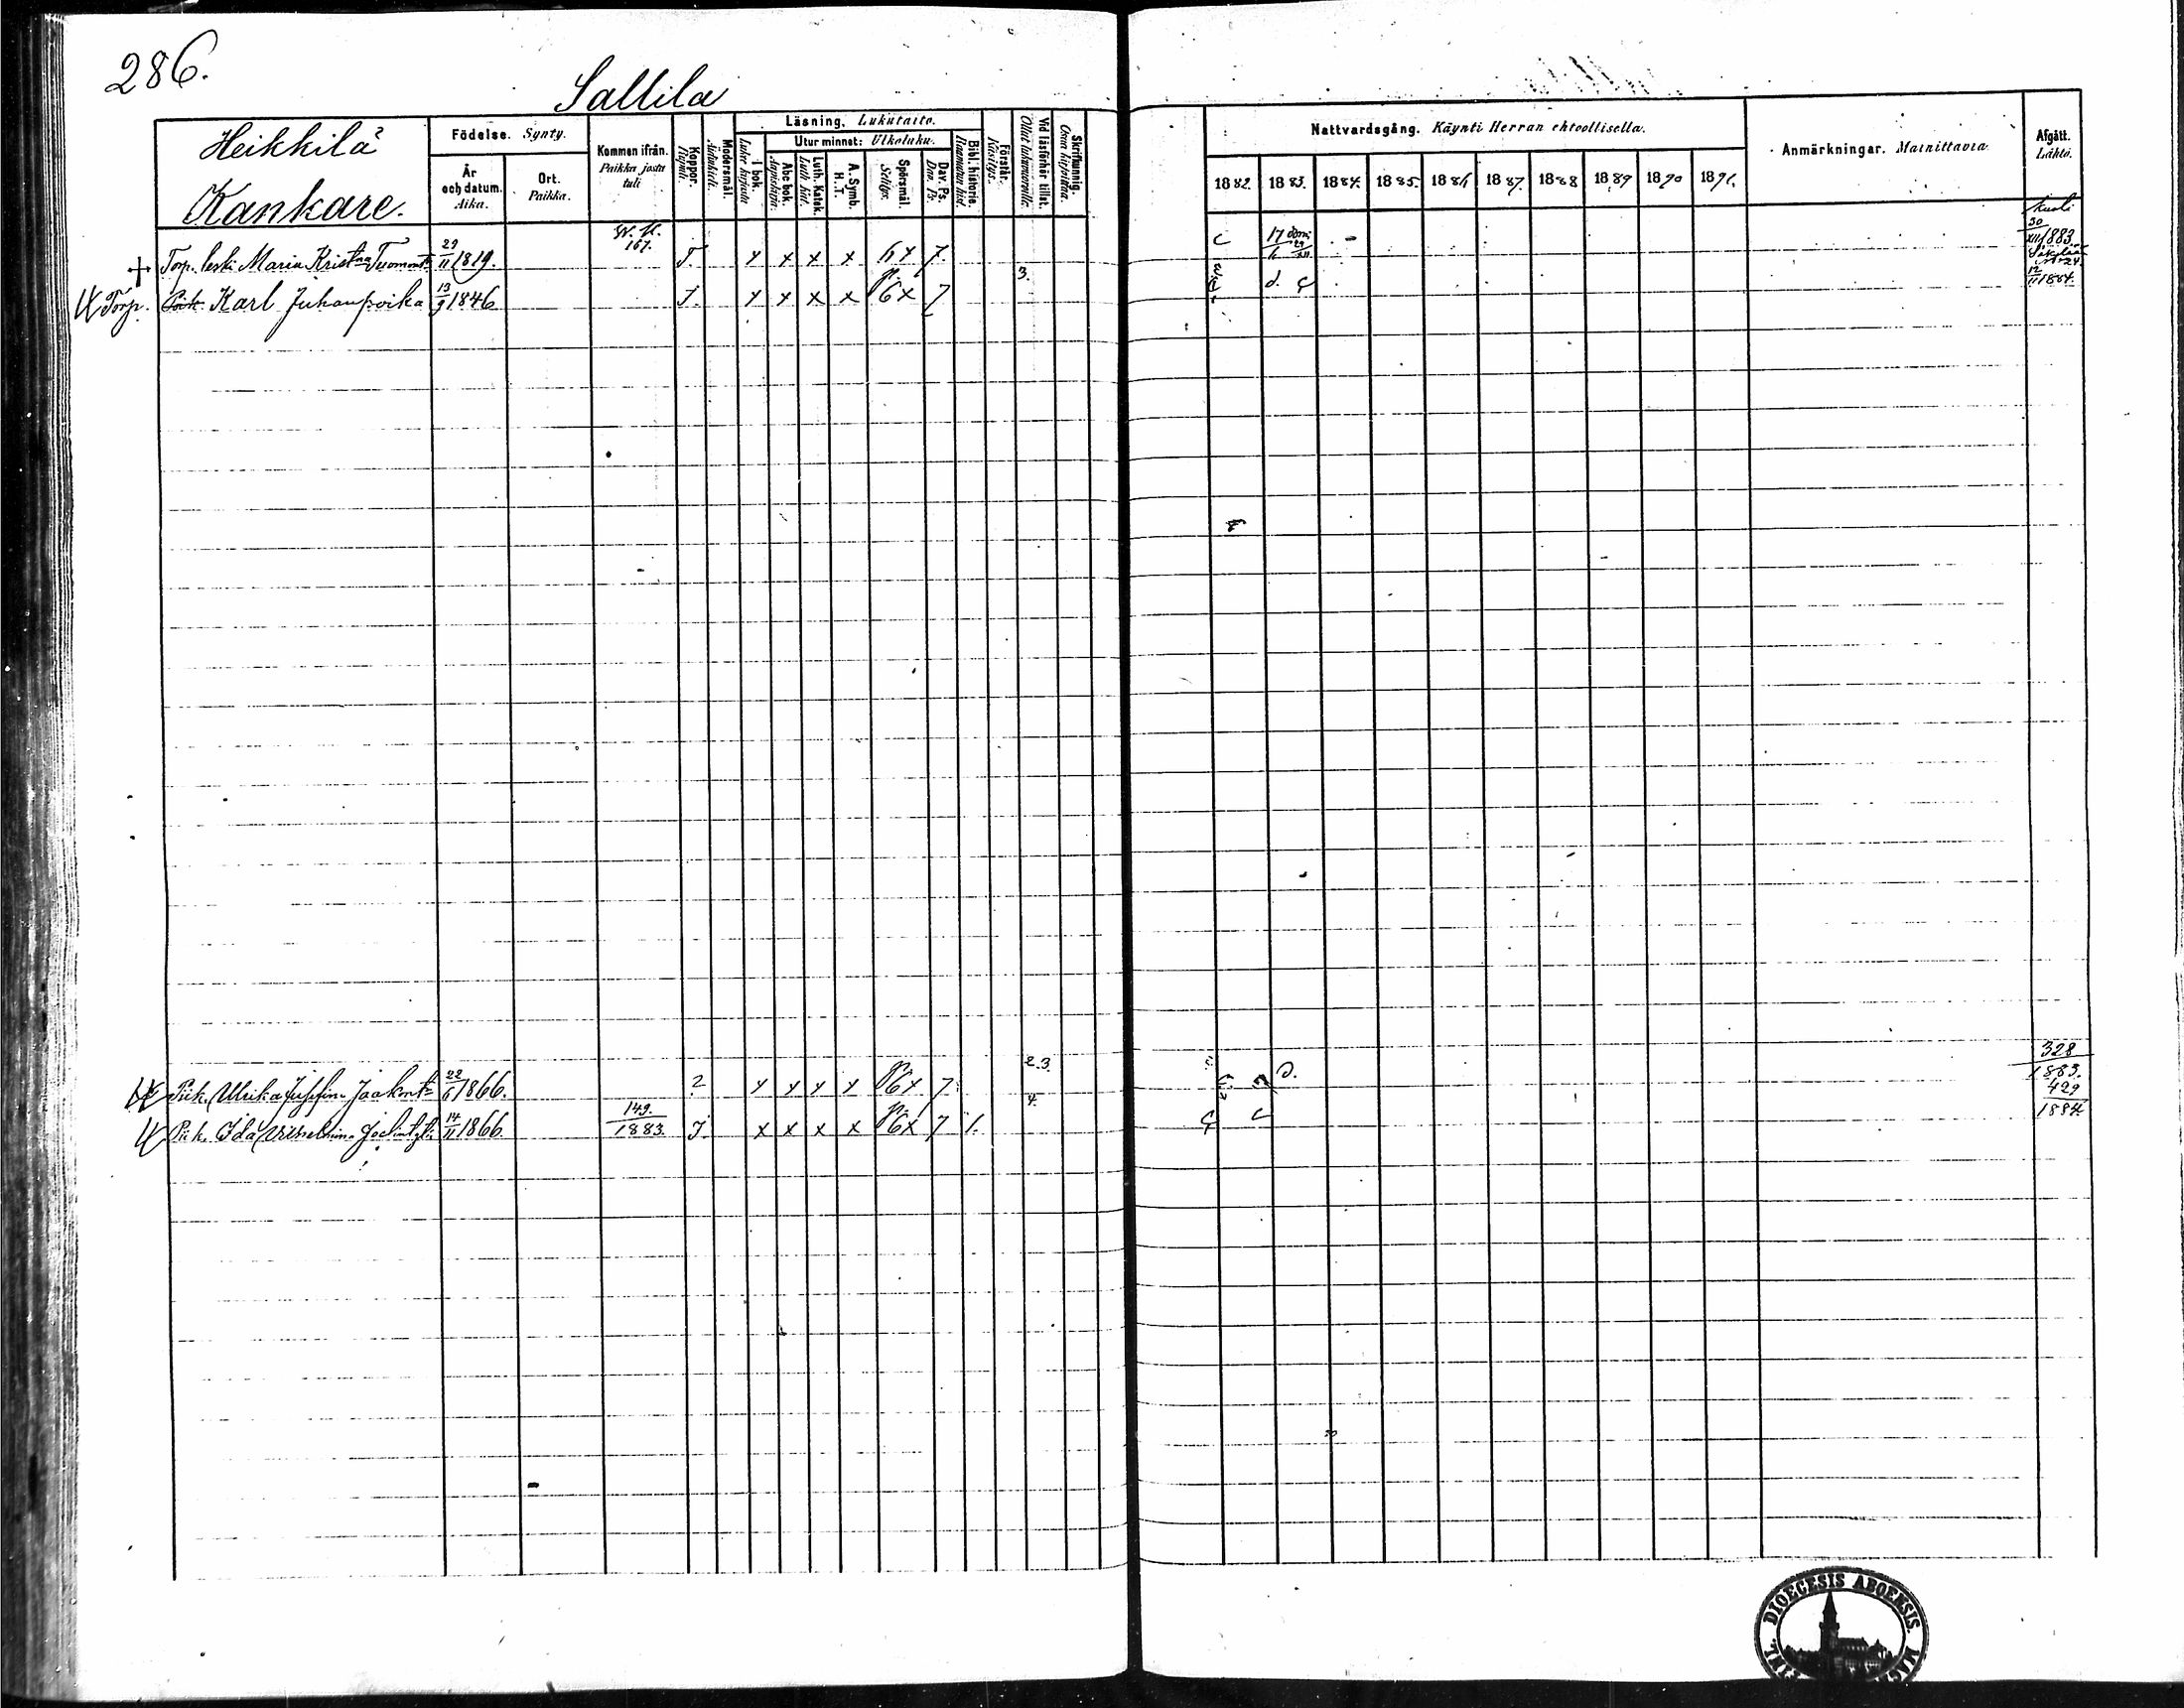 286.
Sallila
Heikkilä
Kankare.
Födelse. Synty.
År och datum. Aika.
Ort. Paikka.
Kommen ifrån. Paikka josta tuli
Koppor. Rupuli.
Modersmål. Äidinkieli.
Läsning. Lukutaito.
I bok. Luku kirjasta
Utur minnet: Ulkoluku.
Abc bok. Aapiskirja.
Luth. Katek. Luth. Kat.
A. Symb. H. T.
Spörsmål. Selitys.
Dav. Ps. Daa. Ps.
Bibl. historie. Raamatun hist.
Förstår. Käsitys.
Vid läsförhör tillst. Ollut lukuvuoroilla.
Skrifkunnig. Osaa kirjoittaa.
Nattvardsgång. Käynti Herran ehtoollisella.
1882. 1883. 1884. 1885. 1886 1887. 1888 1889 1890 1891.
Anmärkningar. Muistettavia
Afgått. Lähtö.
+ Torp. leski Maria Krist:na Tuomant. 29/11 1819. W. K. 167. J. x x x x 6x 7 c 17 kuoli 30/XII 1883.
Torp. Karl Juhanpoika 13/9 1846 J. x x x x 6x 7 3. d. 12/11 1884.
Piik. Ulrika Josefin. Jaakont. 22/6 1866. 2 x x x x 6x 7. 2.3. d. 328/1883.
Piik. Ida Vilhelmina 14/11 1866. 149./1883. J. x x x x 6x 7 1. 4. c 429/1884
DIOECESIS ABOENSIS.